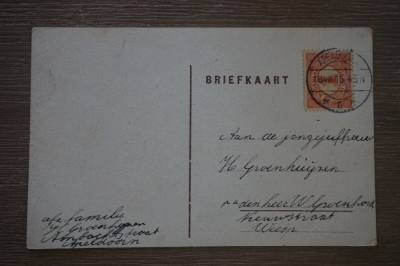 BRIEFKAART
Aan de jongejuffrouw
H. Groenhuijzen
p/a den heer W. Groenhord
Nieuwstraat
Weesp
afz familie
Groenhuijzen
straat
Apeldoorn